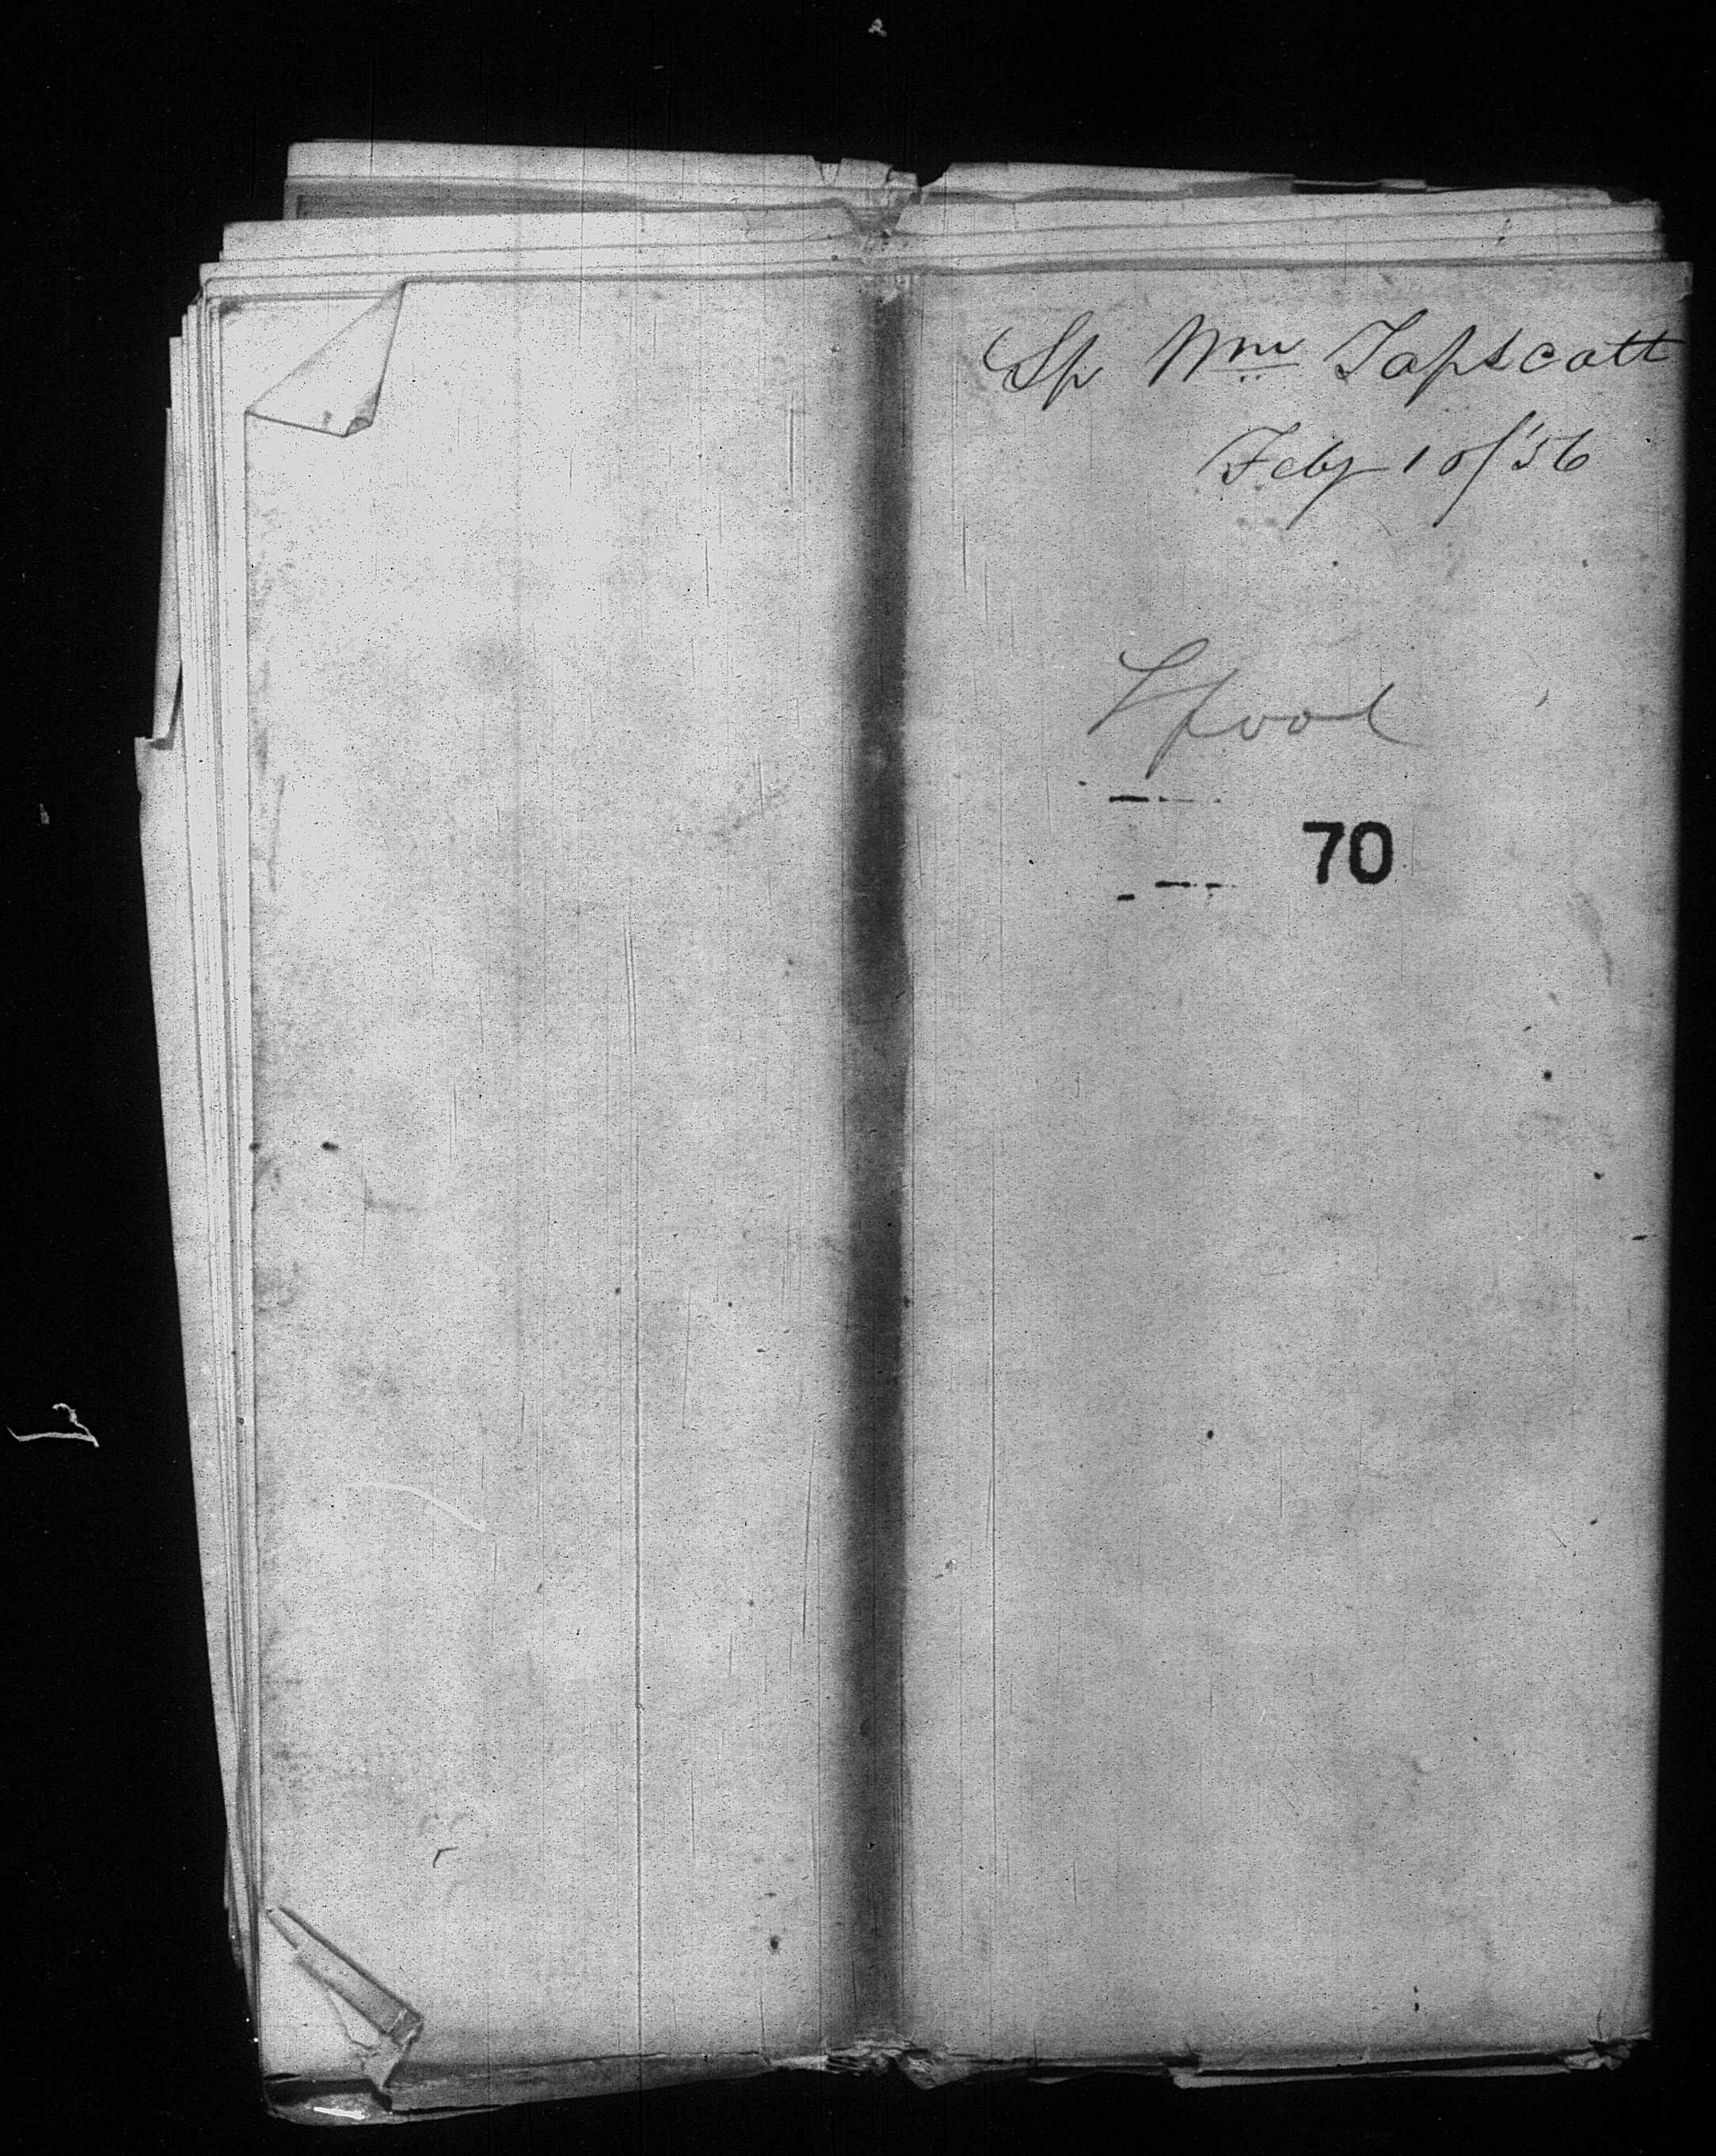 Sp Wm Tapscott
Feby 10/56
Lpool
70